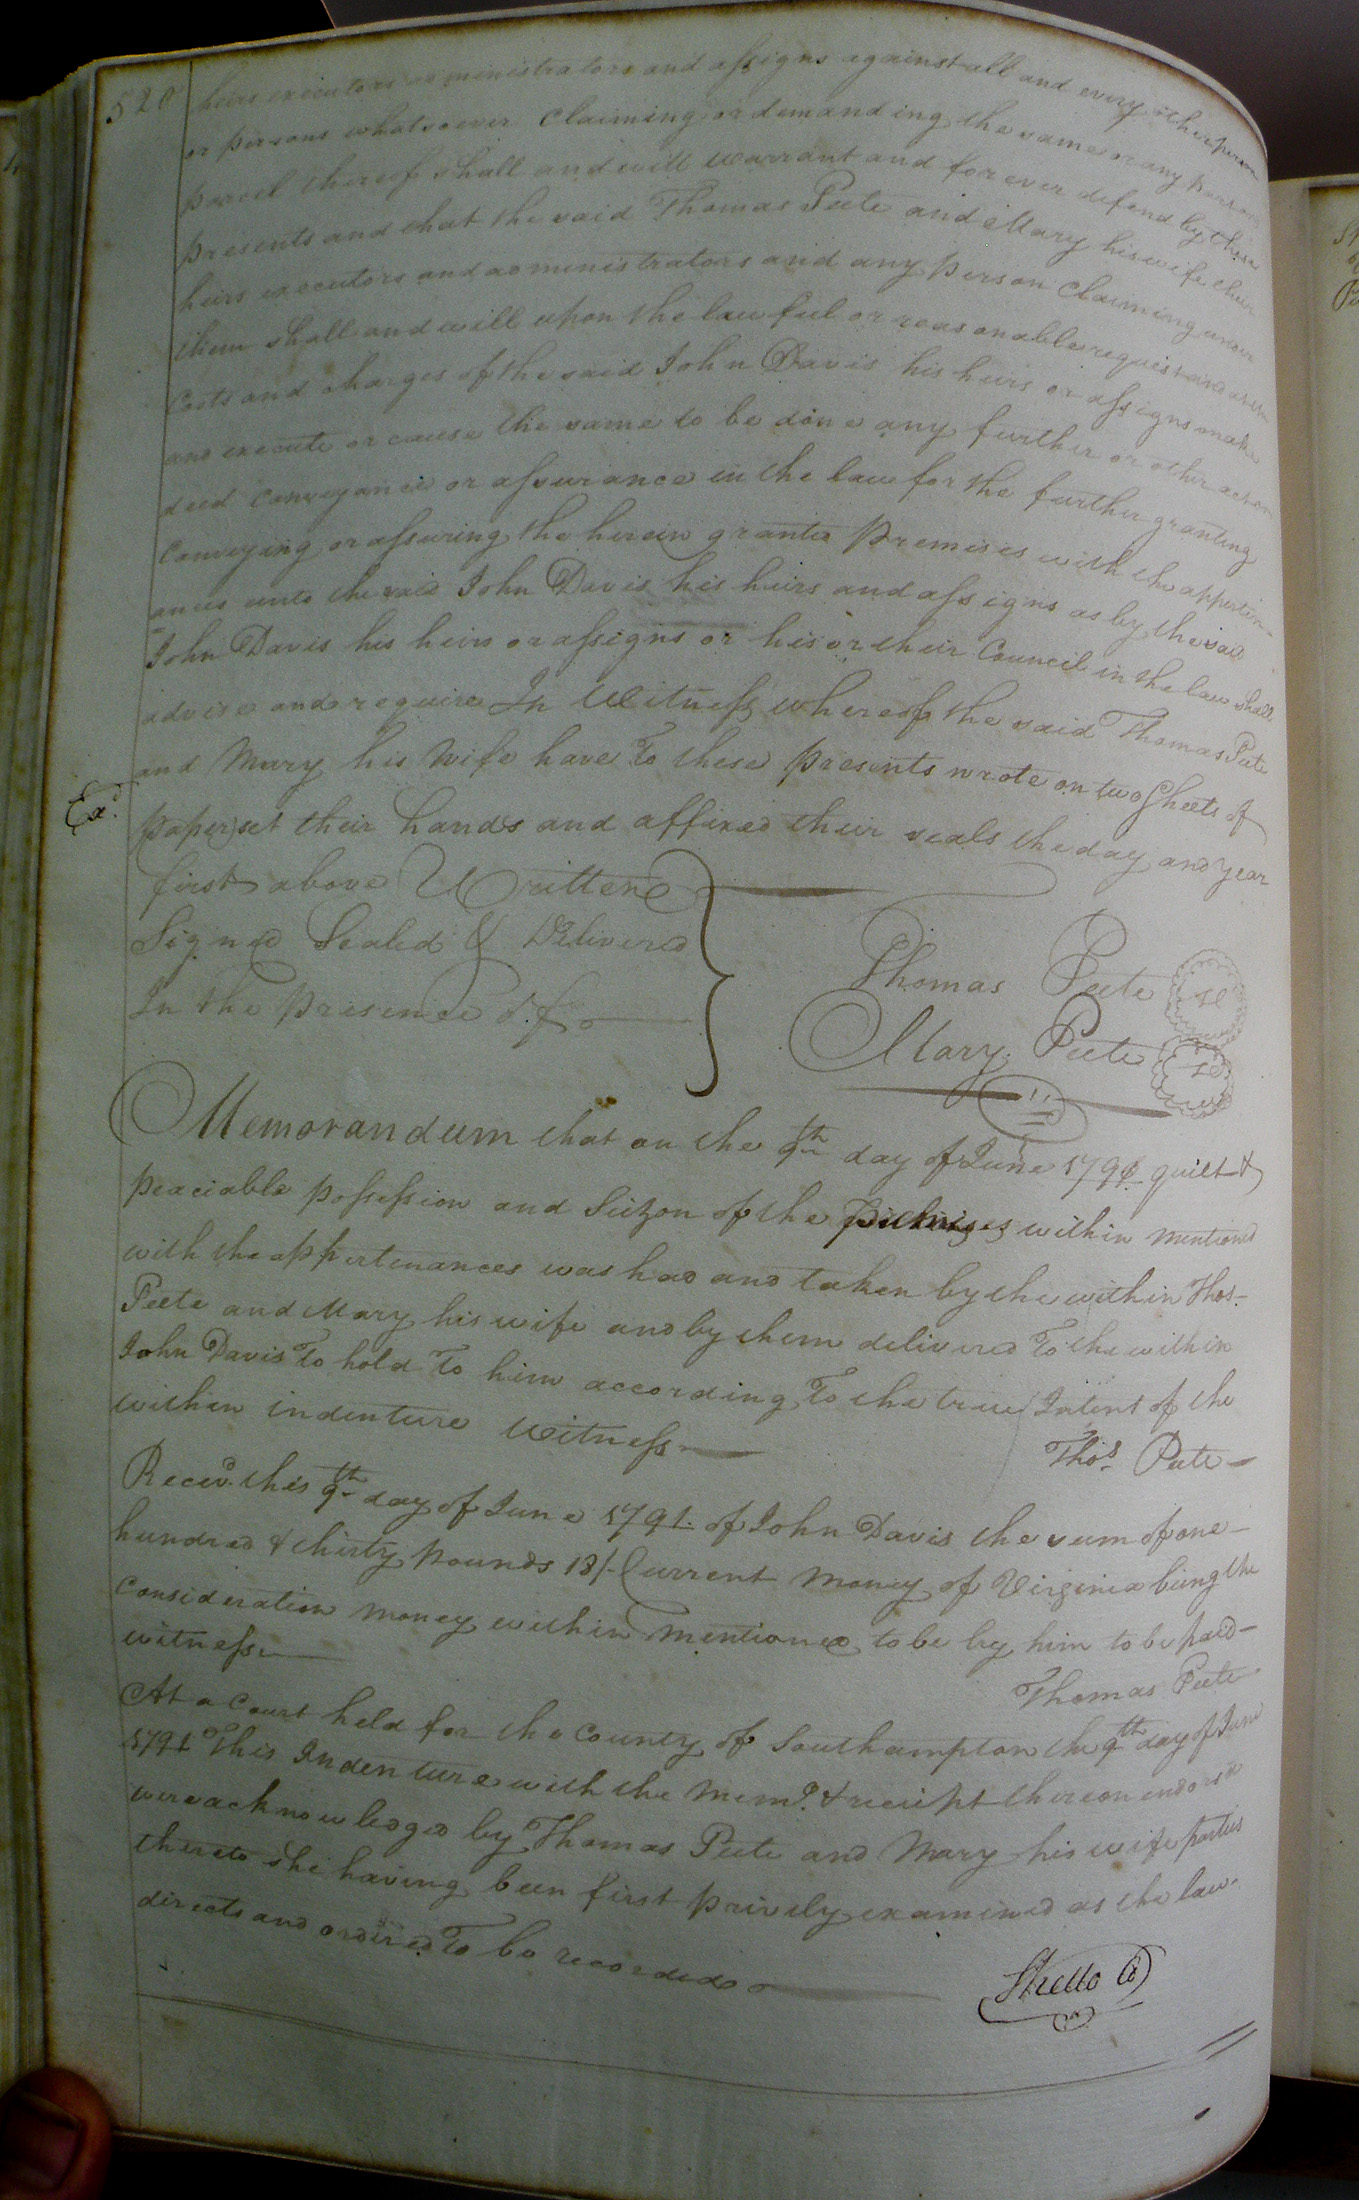 520
heirs executors administrators and assigns against all and every other person
or persons whatsoever Claiming or demanding the same or any part or
parcel thereof shall and will warrant and forever defend by these
presents and that the said Thomas Peete and Mary his wife their
heirs executors and administrators and any person Claiming under
them shall and will upon the lawful or reasonable request and at the
Costs and charges of the said John Davis his heirs or assigns make
and execute or cause the same to be done any further or other act or
deed Conveyance or assurance in the law for the further granting
Conveying or assuring the herein granted Premises with the appurten-
ances unto the said John Davis his heirs and assigns as by the said
John Davis his heirs or assigns or his or their Council in the law shall
advise and require In Witness whereof the said Thomas Peete
and Mary his Wife have To these presents wrote on two Sheets of
Exd.
paper) set their hands and affixed their seals the day and year
first above Written
Signed Sealed & Delivered
In the presence of
Thomas Peete
Mary Peete
Memorandum that on the 9th day of June 1791 quiet &
peaciable possession and Seizon of the premises within mentioned
with the appertenances was had and taken by the within Thos.
Peete and Mary his wife and by them delivered To the within
John Davis To hold To him according To the true Intent of the
within indenture Witness
Thos. Peete
Receivd. this 9th day of June 1791. of John Davis the sum of one
hundred & thirty pounds 18/- Current Money of Virginia being the
Consideration Money within Mentioned to be by him to be paid
witness
Thomas Peete
At a Court held for the County of Southampton the 9th day of June
1791 This Indenture with the Memo. & receipt thereon endorsd
were acknowledged by Thomas Peete and Mary his wife parties
thereto she having been first privily examined as the law
directs and ordered To be recorded